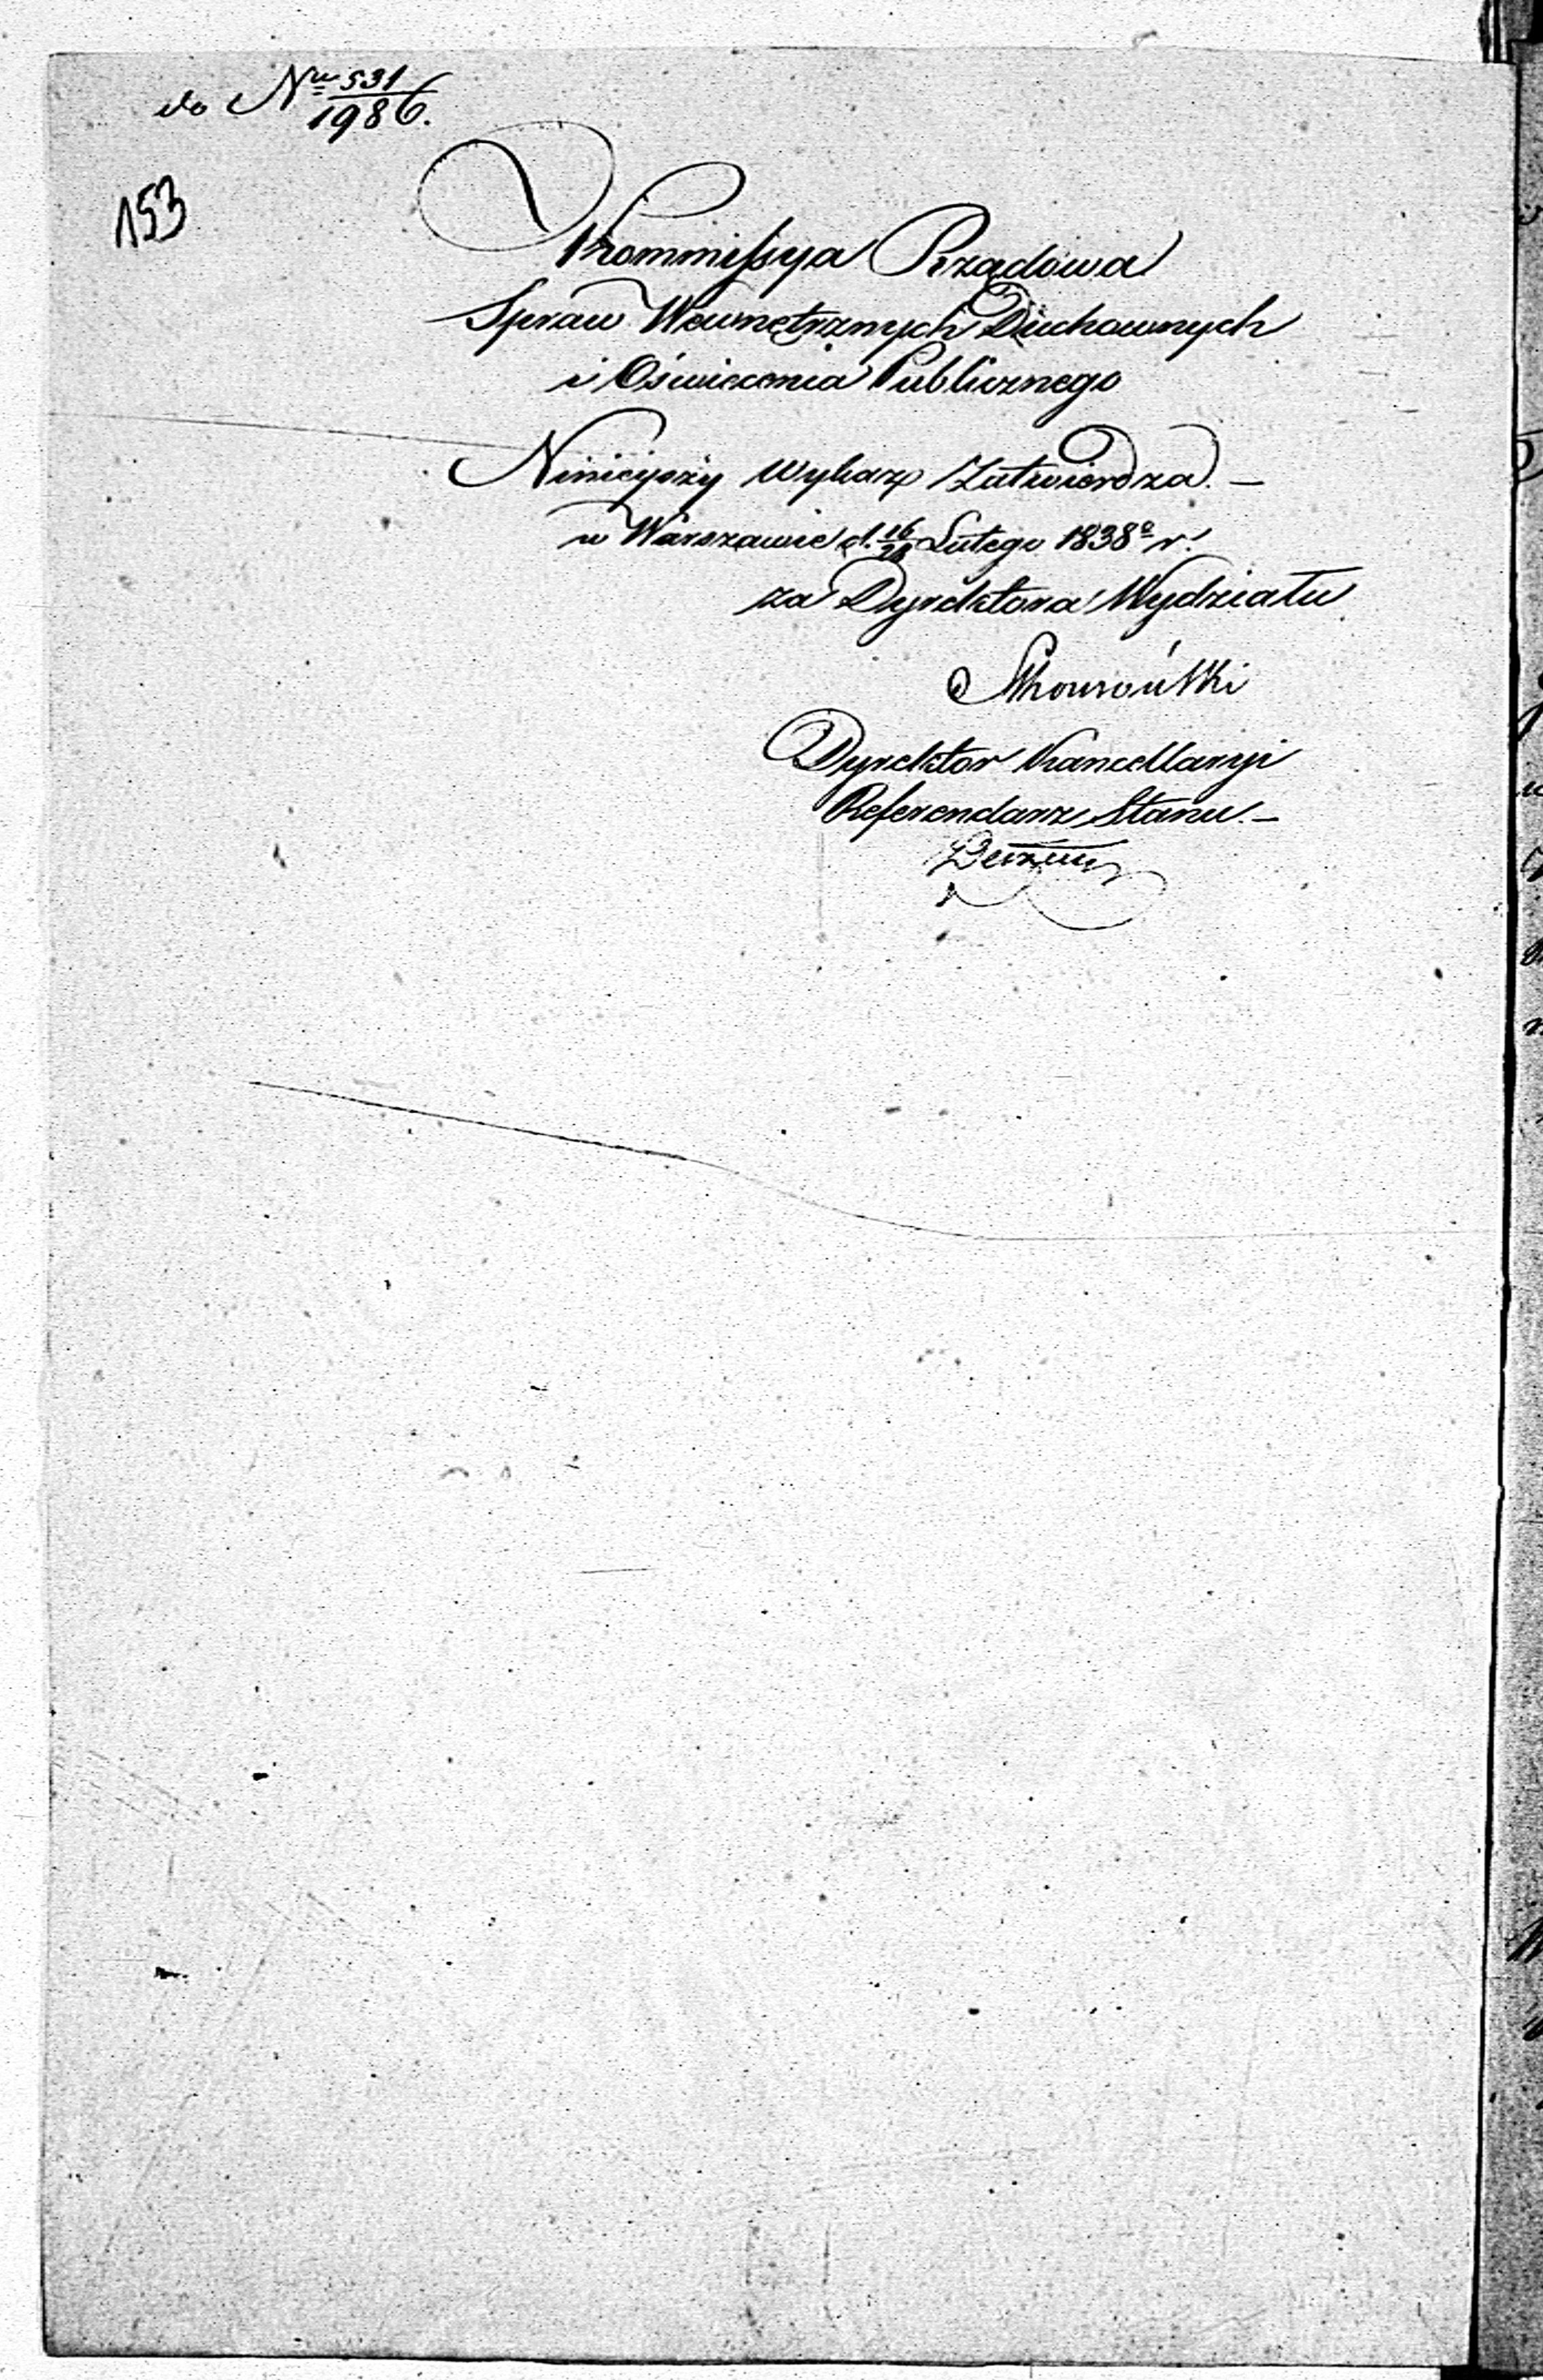 do Nru 531/1986.
153
Kommissya Rządowa
Spraw Wewnętrznych Duchownych
i Oświecenia Publicznego
Ninieyszy Wykaz Zatwierdza. —
w Warszawie d. 16/28 Lutego 1838o r.
za Dyrektora Wydziału
Skowroński
Dyrektor Kancellaryi
Referendarz Stanu. —